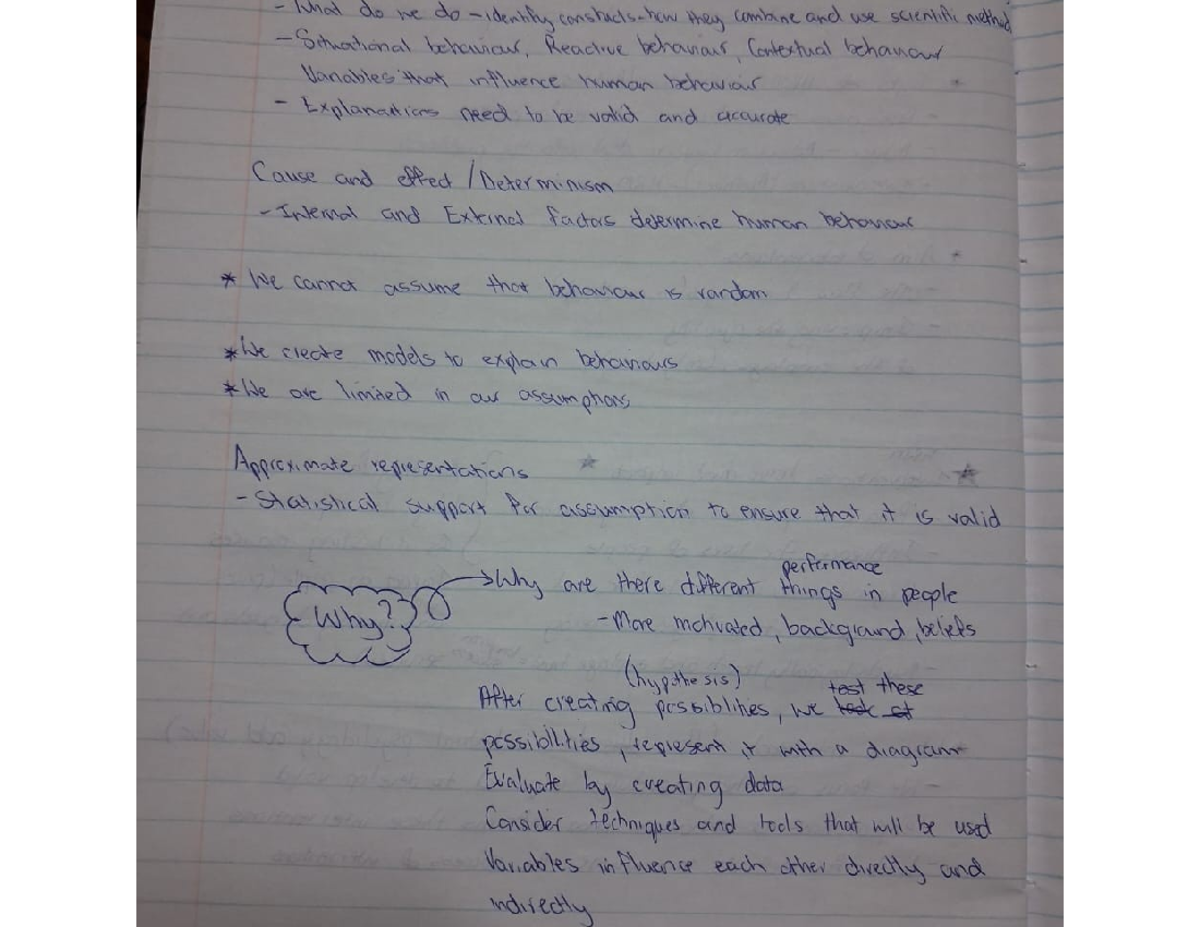 - What do we do - identify constucts - how they combine and use scientific method
- Situational behaviour, Reactive behaviour, Contextual behaviour
Variables that influence human behaviour
- Explanations need to be valid and accurate
Cause and effect / Determinism
- Internal and External factors determine human behaviour
* We cannot assume that behaviour is random
* We create models to explain behaviours
* We are limited in our assumptions
Approximate representations
- Statistical support for assumption to ensure that it is valid
performance
Why? → Why are there different things in people
- More motivated, background, beliefs
(hypthesis)
test these
After creating possiblities, we look at
possibilities, represent it with a diagram
Evaluate by creating data
Consider techniques and tools that will be used
Variables influence each other directly and
indirectly